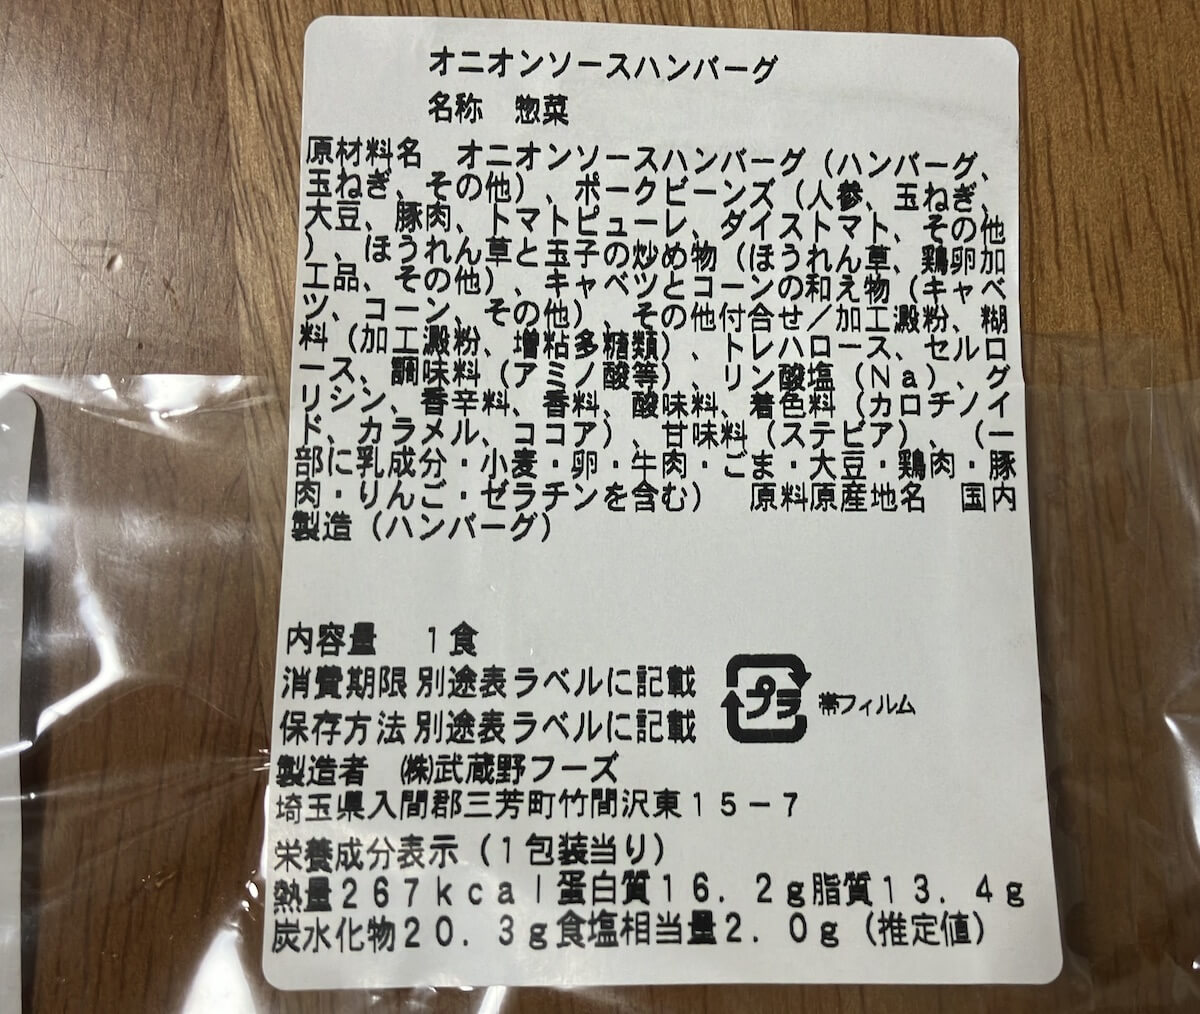 オニオンソースハンバーグ
名称　惣菜
原材料名　オニオンソースハンバーグ（ハンバーグ、
玉ねぎ、その他）、ポークビーンズ（人参、玉ねぎ、
大豆、豚肉、トマトピューレ、ダイストマト、その他
）、ほうれん草と玉子の炒め物（ほうれん草、鶏卵加
工品、その他）、キャベツとコーンの和え物（キャベ
ツ、コーン、その他）、その他付合せ／加工澱粉、糊
料（加工澱粉、増粘多糖類）、トレハロース、セルロ
ース、調味料（アミノ酸等）、リン酸塩（Ｎａ）、グ
リシン、香辛料、香料、酸味料、着色料（カロチノイ
ド、カラメル、ココア）、甘味料（ステビア）、（一
部に乳成分・小麦・卵・牛肉・ごま・大豆・鶏肉・豚
肉・りんご・ゼラチンを含む）　原料原産地名　国内
製造（ハンバーグ）
内容量　１食
消費期限 別途表ラベルに記載
保存方法 別途表ラベルに記載
プラ 帯フィルム
製造者　㈱武蔵野フーズ
埼玉県入間郡三芳町竹間沢東１５－７
栄養成分表示（１包装当り）
熱量２６７ｋｃａｌ蛋白質１６．２ｇ脂質１３．４ｇ
炭水化物２０．３ｇ食塩相当量２．０ｇ（推定値）